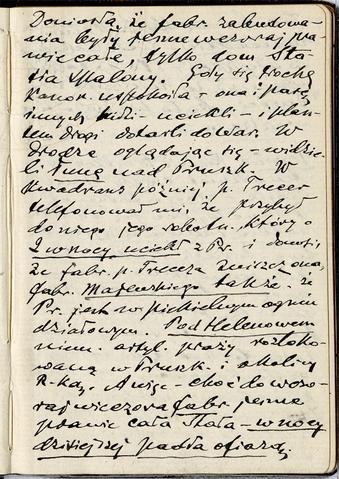 Doniosła, że fabr. zabudowa-
nia były jeszcze wczoraj pra-
wie całe, tylko dom Sta
sia spalony. Gdy się trochę
kanon. uspokoiła - ona i parę
innych ludzi - uciekli - i plan-
tem drogi dotarli do War. W
drodze oglądając się - widzie-
li łunę nad Pruszk. - W
kwadrans później p. Trecer
telefonował mi, że przybył
do niego jego robotn., który o
2 w nocy uciekł z Pr. i donosi,
że fabr. p. Trecera zniszczona,
fabr. Majewskiego także. że
Pr. jest w piekielnym ogniu
działowym. Pod Helenowem
niem. artyl. praży rozloko-
waną w Pruszk. i okolicy
R-ką. A więc - choć do wczo-
raj wieczora fabr. jeszcze
prawie cała stała - w nocy
dzisiejszej padła ofiarą.